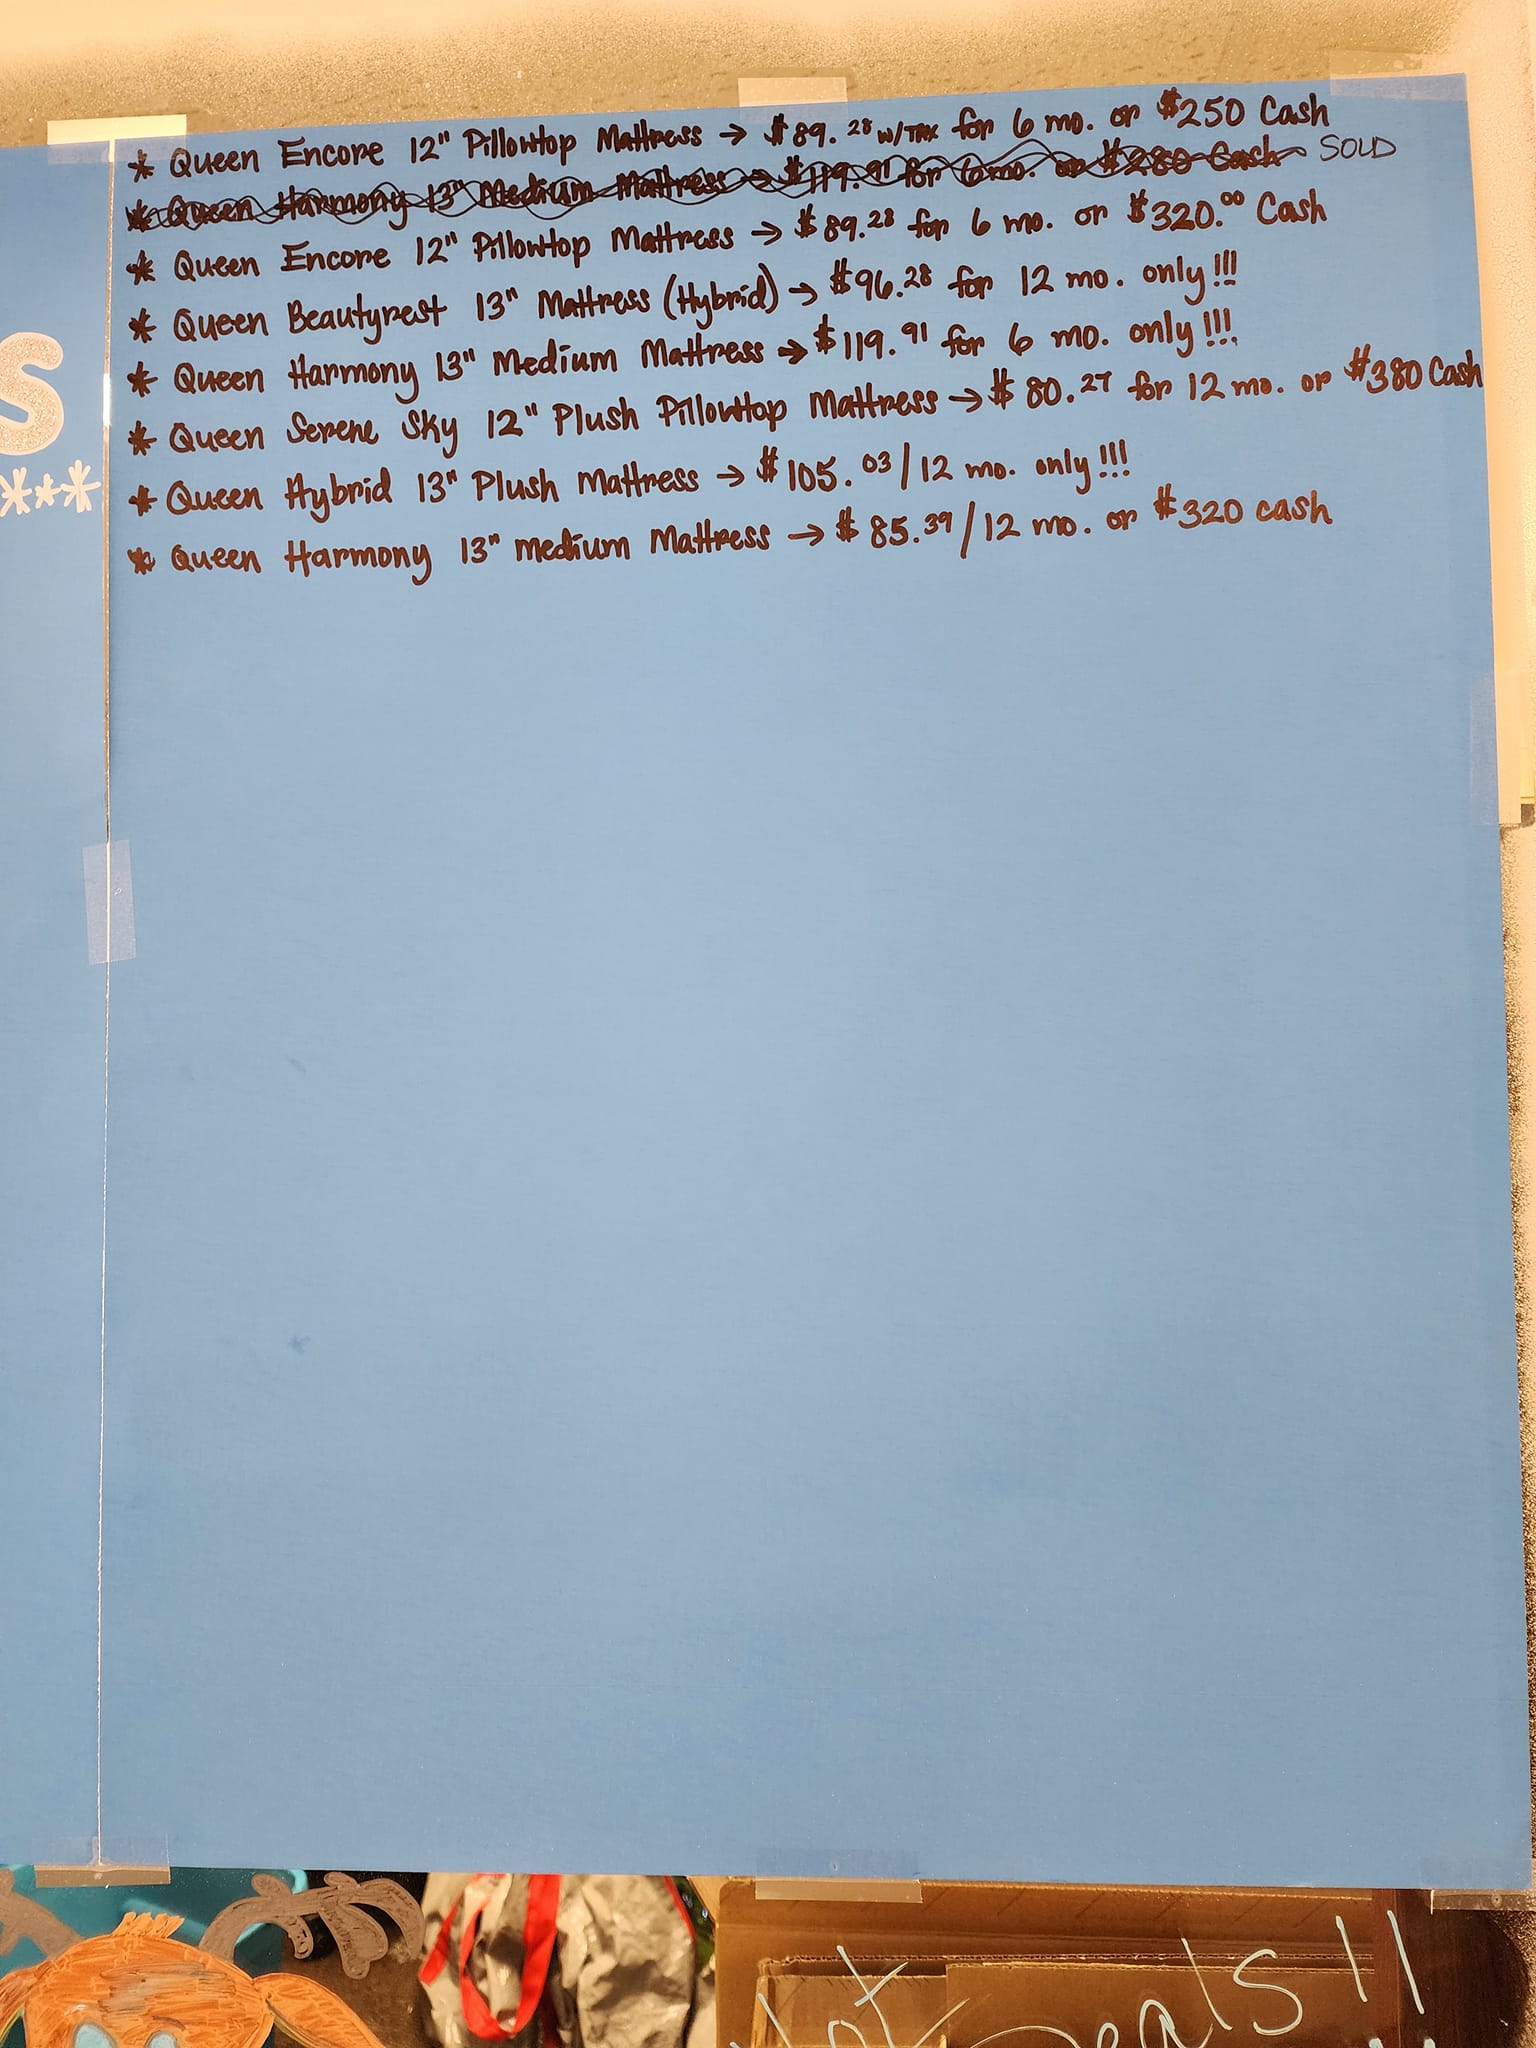 * Queen Encore 12" Pillowtop Mattress → $89.28 w/TAX for 6 mo. or $250 Cash
* Queen Harmony 13" Medium Mattress → $119.91 for 6 mo. or $280 Cash SOLD
* Queen Encore 12" Pillowtop Mattress → $89.28 for 6 mo. or $320.00 Cash
* Queen Beautyrest 13" Mattress (Hybrid) → $96.28 for 12 mo. only!!!
* Queen Harmony 13" Medium Mattress → $119.91 for 6 mo. only!!!
* Queen Serene Sky 12" Plush Pillowtop Mattress → $80.27 for 12 mo. or $380 Cash
* Queen Hybrid 13" Plush Mattress → $105.03/12 mo. only!!!
* Queen Harmony 13" medium Mattress → $85.39/12 mo. or $320 cash
S
***
Hot Deals!!